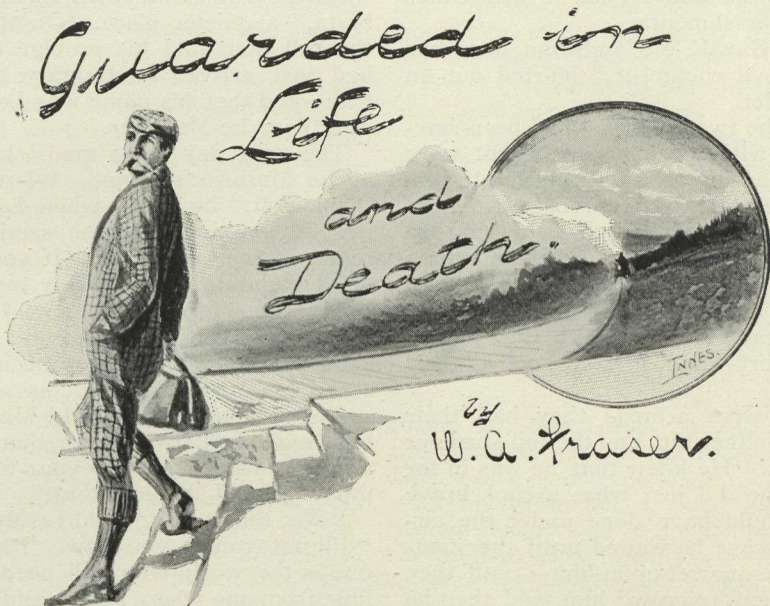 Guarded in
Life
and
Death.
INNES.
by
W. A. Fraser.